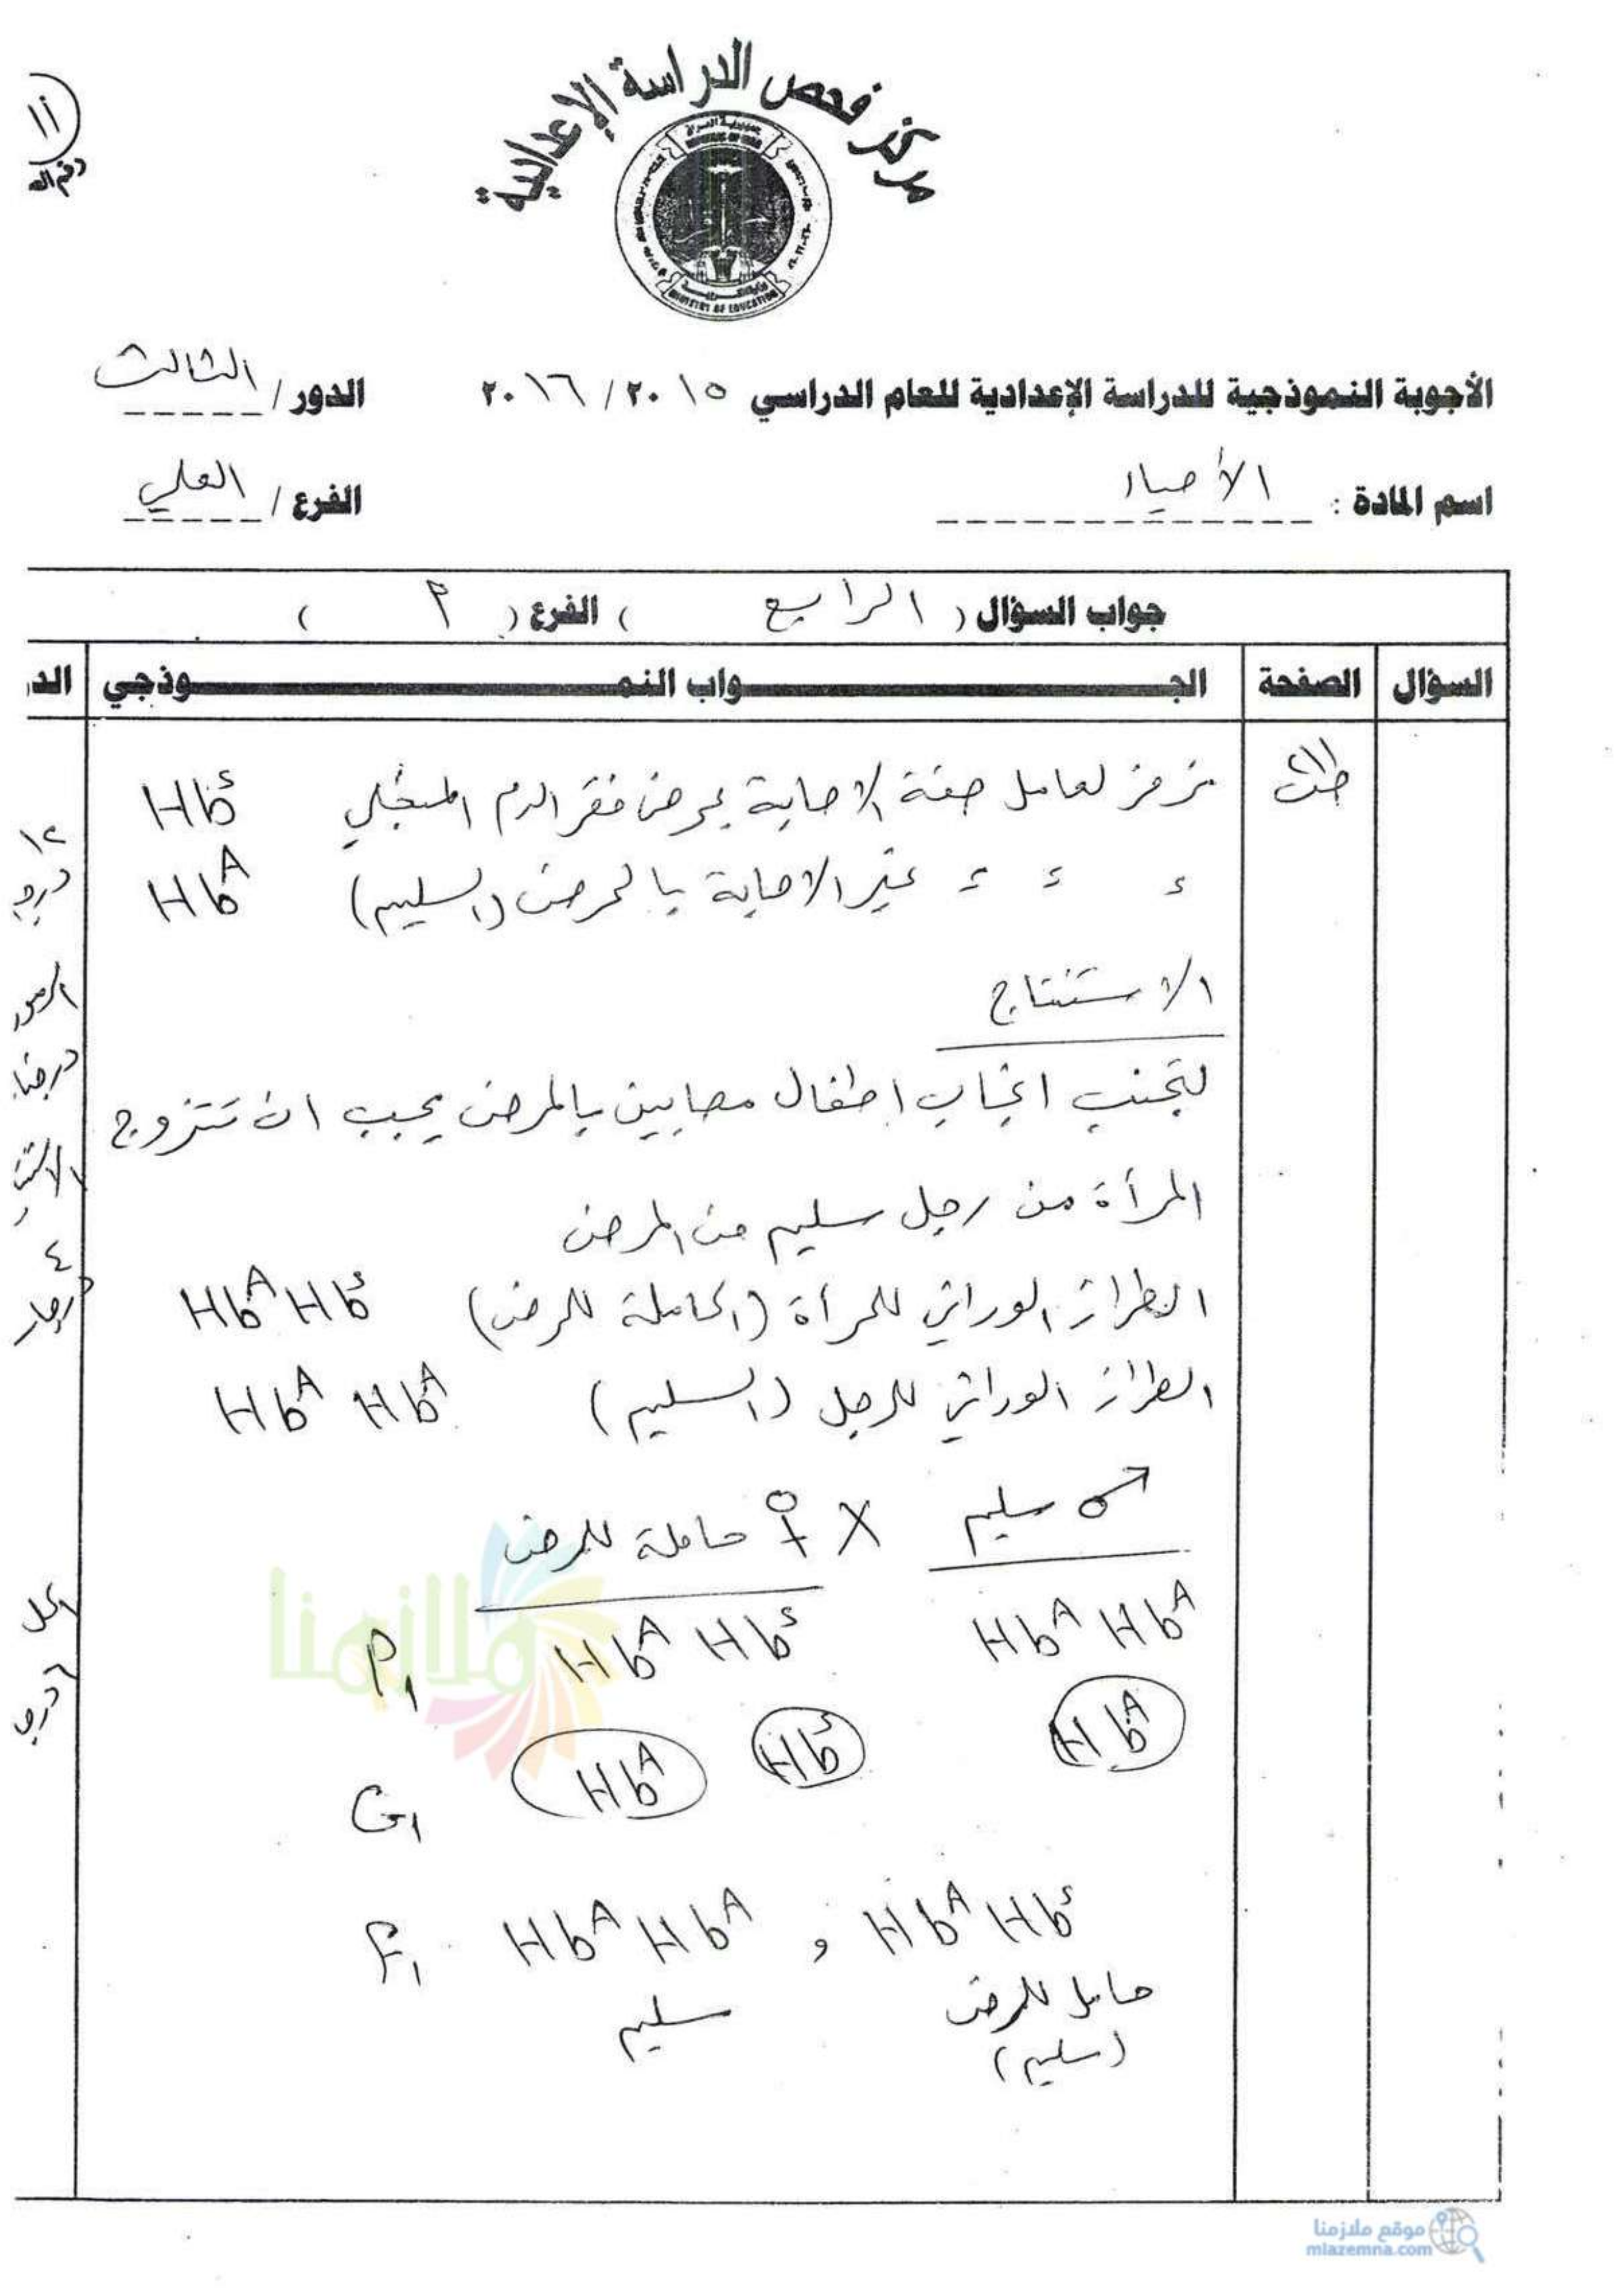 ١١
مركز فحص الدراسة الإعدادية
جمهورية العراق
MINISTRY OF EDUCATION
الأجوبة النموذجية للدراسة الإعدادية للعام الدراسي ٢٠١٥ / ٢٠١٦ الدور / الثالث
اسم المادة : الأحياء الفرع / العلمي
جواب السؤال ( الرابع ) الفرع ( أ )
السؤال الصفحة الجـــواب النمـــوذجي الد
نرمز لعامل صفة الاصابة بمرض فقر الدم المنجلي Hbˢ
ء ء ء غير الاصابة بالمرض (السليم) Hbᴬ
الاستنتاج
لتجنب انجاب اطفال مصابين بالمرض يجب ان تتزوج
المرأة من رجل سليم من المرض
الطراز الوراثي للمرأة (الحاملة للمرض) Hbᴬ Hbˢ
الطراز الوراثي للرجل (السليم) Hbᴬ Hbᴬ
♂ سليم X ♀ حاملة للمرض
P₁ Hbᴬ Hbˢ Hbᴬ Hbᴬ
G₁ Hbᴬ Hbˢ Hbᴬ
F₁ Hbᴬ Hbᴬ , Hbᴬ Hbˢ
سليم حامل للمرض
(سليم)
١٢
٤
الحل
ملازمنا
موقع ملازمنا
mlazemna.com